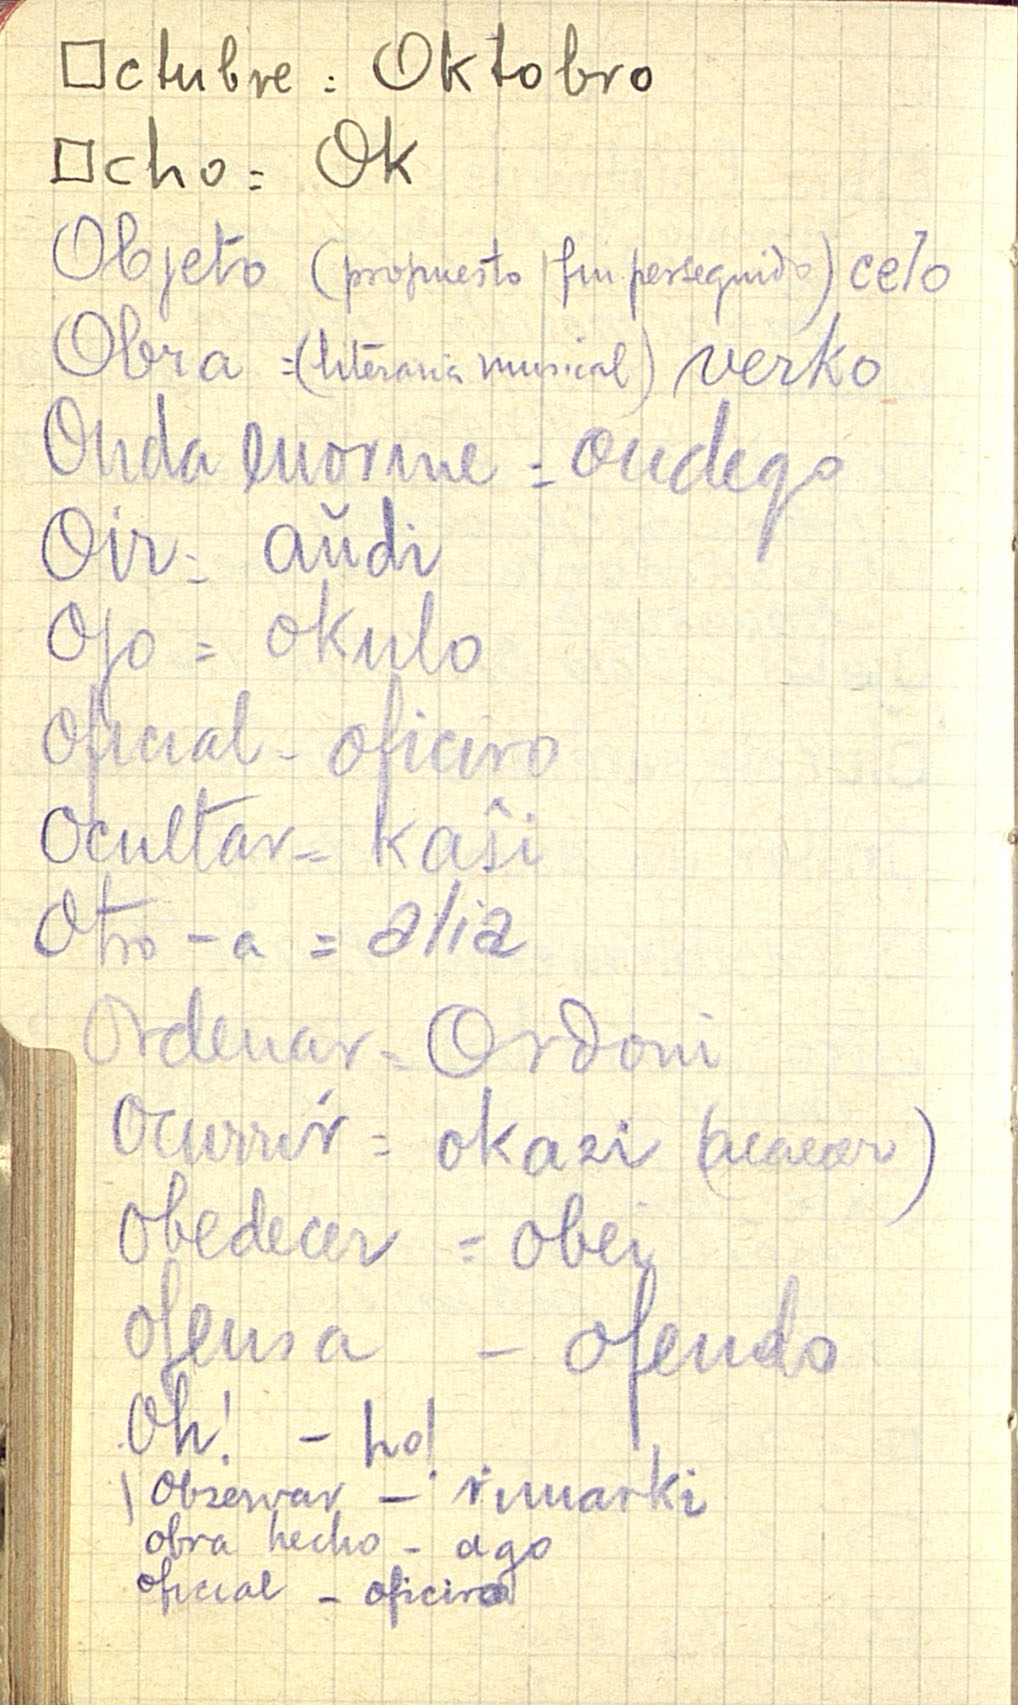 Octubre = Oktobro
Ocho = Ok
Objeto (propuesto fin perseguido) celo
Obra = (literaria musical) verko
Onda enorme = ondego
Oir = aŭdi
Ojo = okulo
Oficial - oficiro
Ocultar = kaŝi
Otro - a = alia
Ordenar = Ordoni
Ocurrir = okazi (acaecer)
obedecer = obei
ofensa - ofendo
Oh! - ho!
Observar - rimarki
obra hecho - ago
oficial - oficiro